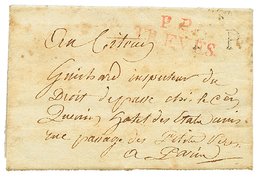 P. P.
TREVES
R
Au Citoien
Guichard inspecteur du
Droit de passe chez le Cen
hotel des Etats unis
rue passage des Petits Peres
a Paris